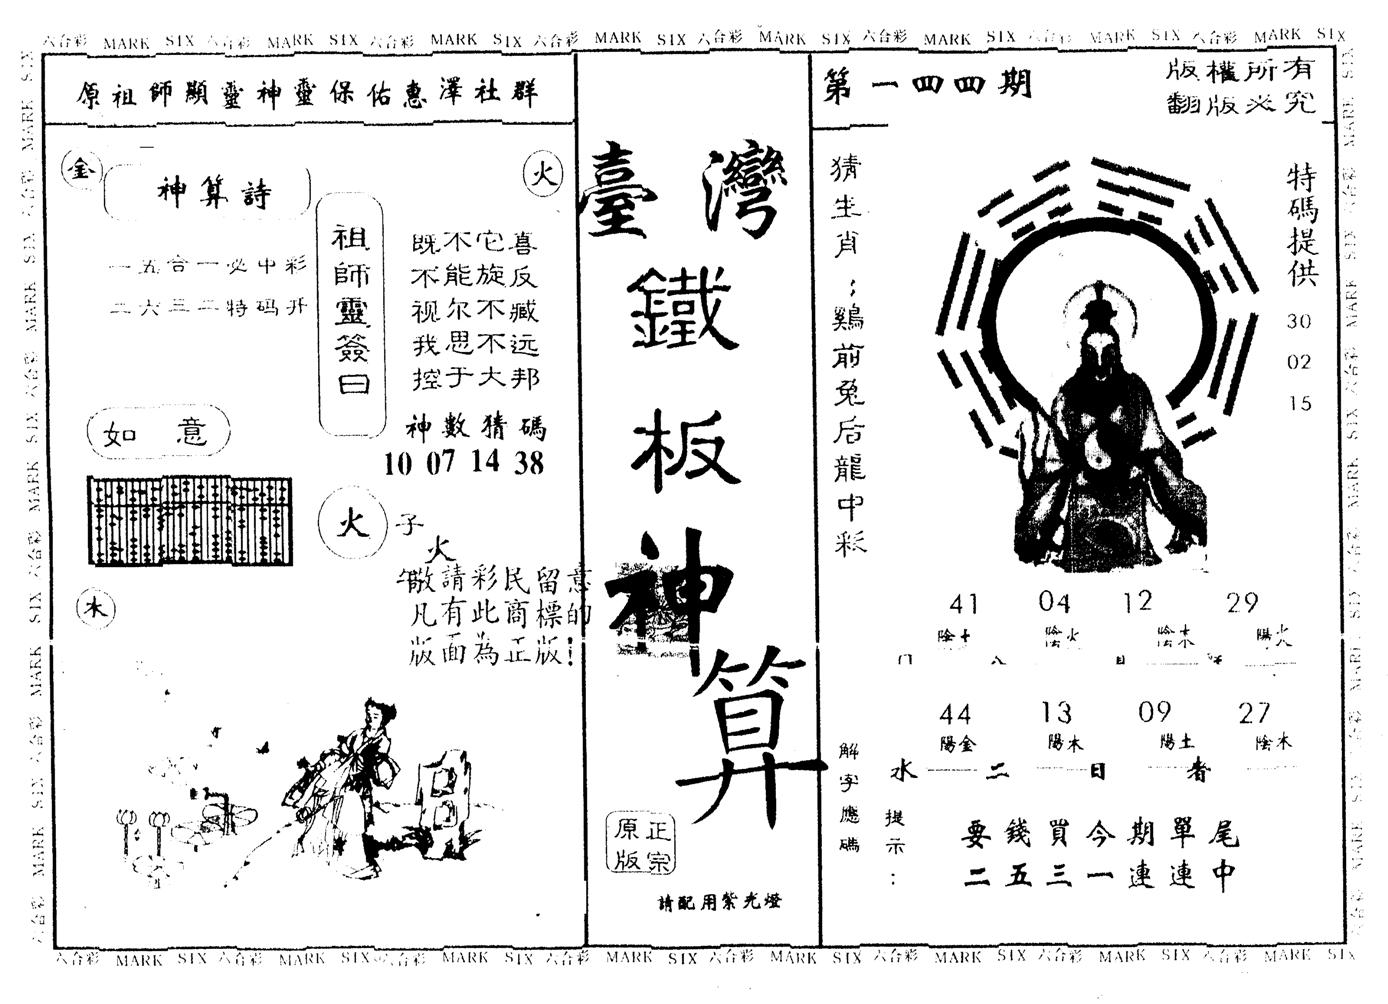 六合彩 MARK SIX 六合彩 MARK SIX 六合彩 MARK SIX 六合彩 MARK SIX 六合彩 MARK SIX 六合彩 MARK SIX 六合彩 MARK SIX 六合彩 MARK SIX
原祖師顯靈神靈保佑惠澤社群
金
神算詩
火
一五合一必中彩
二六三二特码开
祖師靈簽曰
既不它喜
不能旋反
视尔不臧
我思不远
控于大邦
神數猜碼
10 07 14 38
如意
火
子
火
午
木
敬請彩民留意
凡有此商標的
版面為正版!
臺灣
鐵
板
神
算
正宗
原版
請配用紫光燈
第一四四期
版權所有
翻版必究
猜生肖：鷄前兔后龍中彩
特碼提供
30
02
15
41 04 12 29
陰土 陰火 陰木 陽火
44 13 09 27
陽金 陽木 陽土 陰木
水 二 日 者
解字應碼
提示：
要錢買今期單尾
二五三一連連中
六合彩 MARK SIX 六合彩 MARK SIX 六合彩 MARK SIX 六合彩 MARK SIX 六合彩 MARK SIX 六合彩 MARK SIX 六合彩 MARK SIX 六合彩 MARK SIX